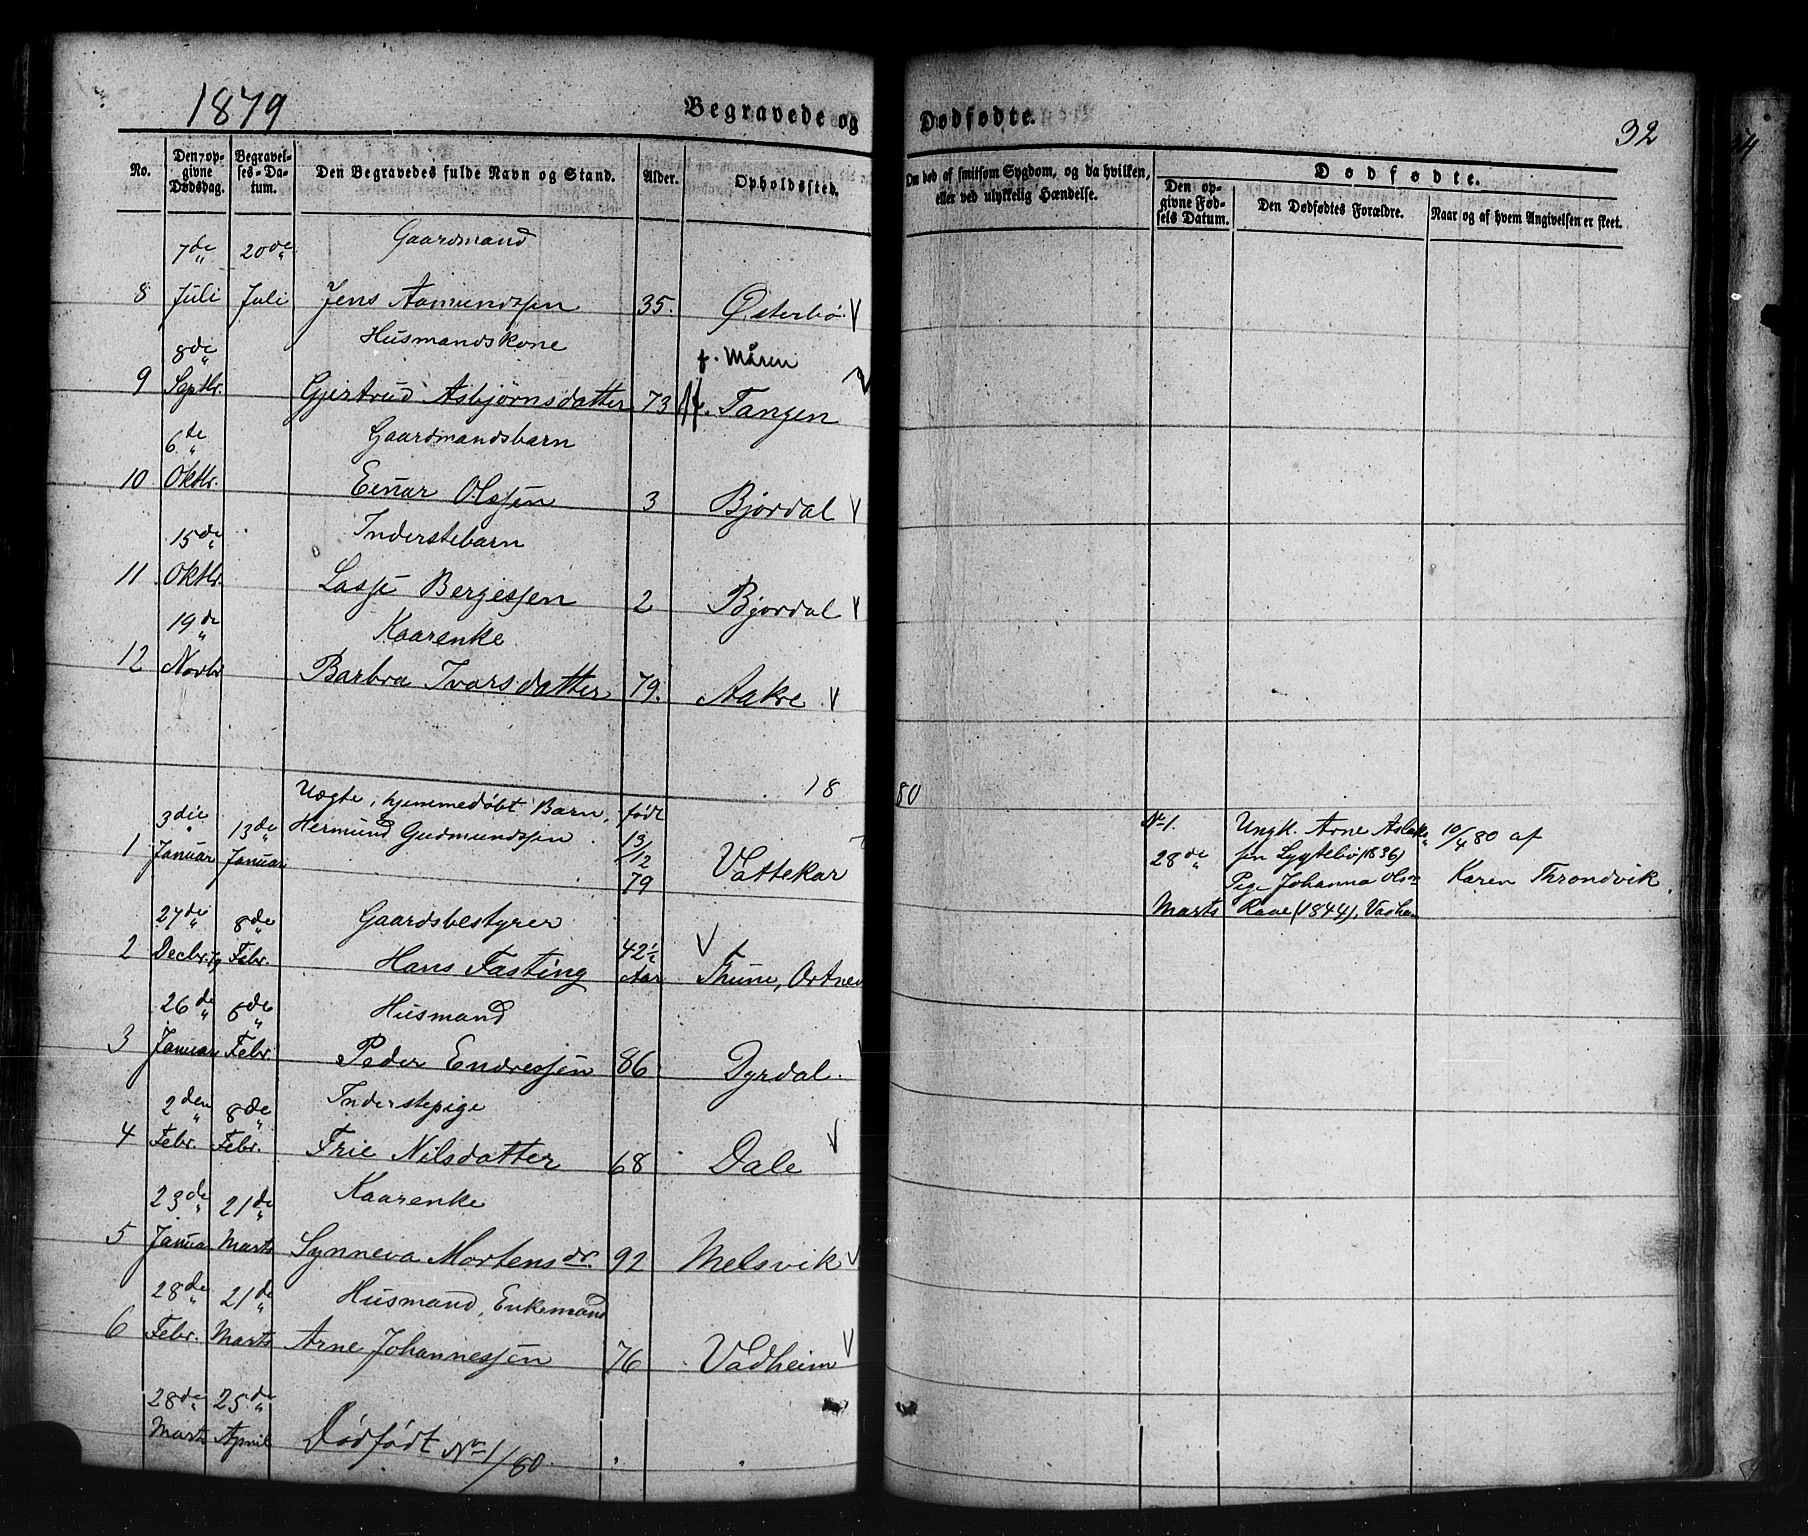 1879
Begravede og Dødfødte.
32
No.
Den opgivne Dødsdag.
Begravelses-Datum.
Den Begravedes fulde Navn og Stand.
Alder.
Opholdssted.
Om død af smitsom Sygdom, og da hvilken, eller ved ulykkelig Hændelse.
Dødfødte.
Den opgivne Fødsels Datum.
Den Dødfødtes Forældre.
Naar og af hvem Angivelsen er skeet.
7de 20de Gaardmand
8 Juli Juli Jens Aamundssen 35. Østerbø V
8de Husmandskone f. Måren
9 Septbr. Gjertrud Asbjørnsdatter 73 Tangen
6te Gaardmandsbarn
10 Oktbr. Einar Olssen 3 Bjordal V
15de Inderstebarn
11 Oktbr. Lasse Bergessen 2 Bjordal V
19de Kaarenke
12 Novbr Barbra Ivarsdatter 79. Aakre V
1880
3die 13de Uægte, hjemmedøbt Barn, født
1 Januar Januar Hermund Gudmundssen 13/12 79 Vattekar
No 1. 28de Marts
Ungk. Arne Aslak-
sen Lygtebø (1836)
Pige Johanna Olsen
Raae (1844), Vadheim
10/4 80 af
Karen Throndvik.
27de 8de Gaardsbestyrer
2 Decbr. 79 Febr. Hans Fasting 42½ Aar V Thune, Ortnev
26de 8de Husmand
3 Januar Febr. Peder Endressen 86 Dyrdal.
2den 8de Inderstepige
4 Febr. Febr. Frie Nilsdatter 68 Dale V
23de 21de Kaarenke
5 Janua Marts Synneva Mortensdr. 92 Melsvik V
28de 21de Husmand, Enkemand
6 Febr. Marts Arne Johannessen 76 Vadheim V
28de 25de
Marts April Dødfødt No 1/80